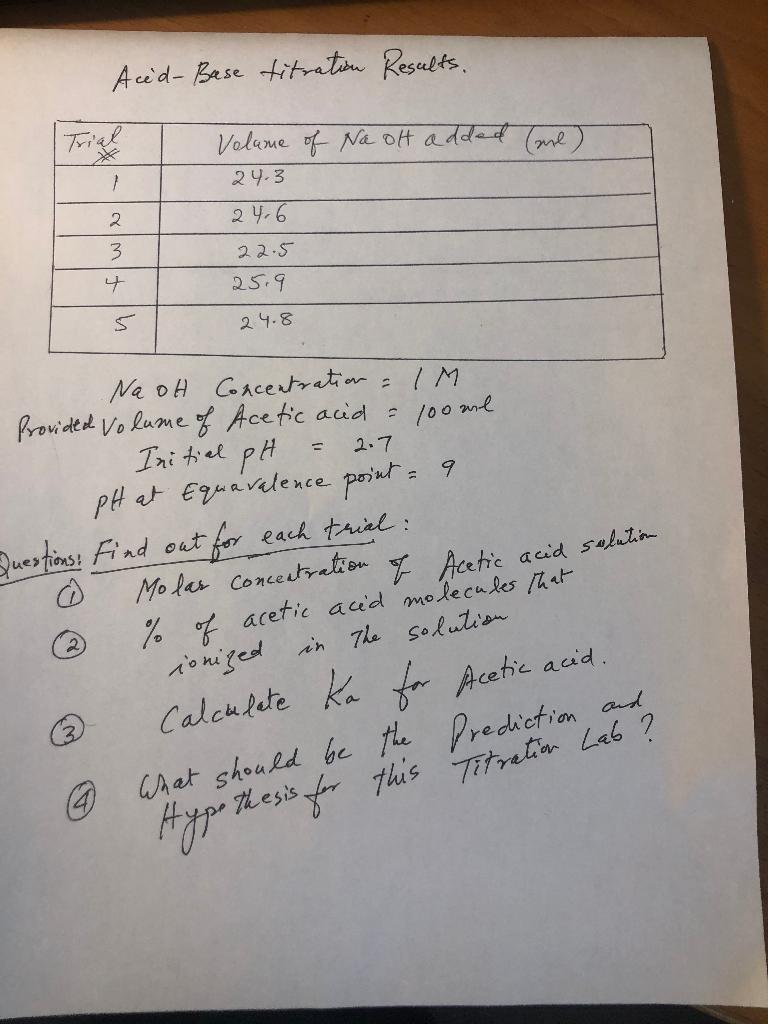 Acid-Base titration Results.
Trial Volume of NaOH added (ml)
1 24.3
2 24.6
3 22.5
4 25.9
5 24.8
NaOH Concentration = 1 M
Provided Volume of Acetic acid = 100 ml
Initial pH = 2.7
pH at Equavalence point = 9
Questions: Find out for each trial:
① Molar concentration of Acetic acid solution
② % of acetic acid molecules that
ionized in the solution
③ Calculate Ka for Acetic acid.
④ What should be the Prediction and
Hypothesis for this Titration Lab?